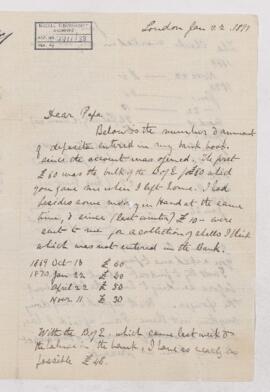 London Jan 22. 1871
Dear Papa
Below is the number & amount
of deposits entered in my bank book
since the account was opened. The first
£60 was the bulk of the B of E / £80 which
you gave me when I left home. I had
besides some money in hand at the same
time, & since (last winter) £10 — were
sent to me for a collection of shells I think
which was not entered in the Bank.
1869 Oct 18 £ 60
1870 Jan 22 £ 20
April 22 £ 30
Nov 11 £ 30
With the B of E, which came last week &
the balance in the bank, I have as nearly as
possible £ 46.